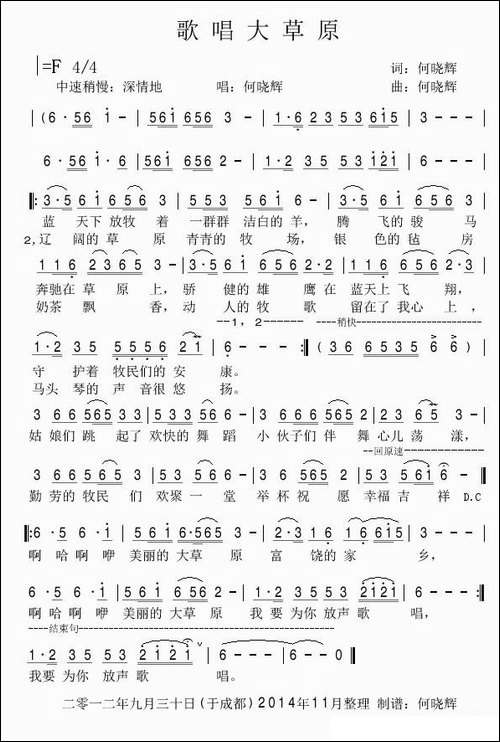 歌唱大草原
1=F 4/4
词：何晓辉
中速稍慢：深情地 唱：何晓辉 曲：何晓辉
|(6·56 i - |56i 656 3 - |1·6 23 53 6i5|3---|
6·56i·6|56i 656 2-|1·2 35 53 i2i|6---|
‖:3·5 6i 656 3|3·56i 656 2-|1·6 2 3·5 656 3·5|
蓝 天下 放牧 着 一群群 洁白的 羊，腾 飞的 骏 马
2,辽 阔的 草 原 青青的 牧 场，银 色的 毡 房
116 2365 -|3·5 6i 6 56|2·3 116 56 2·3|
奔驰在 草 原 上，骄 健的 雄 鹰 在 蓝天上 飞 翔，
奶茶 飘 香，动 人的 牧 歌 留在了 我心 上，
--1，2------ ----稍快----
1·2 35 5556 2i|6---:‖(36 6535 6 6|
守 护着 牧民们的 安 康。
马头 琴的 声 音很 悠 扬。
3 66 565 3|53 53 56 6|3 66 665 2|23 2 65 -|
姑 娘们 跳 起了 欢快的 舞 蹈 小 伙子们 伴 舞 心儿 荡 漾，
--回原速--
3 66 565 3|53 5 56 6|3 3 565 2|53 56i 6 -‖
勤 劳的 牧民 们 欢聚 一 堂 举 杯 祝 愿 幸福 吉 祥 D.C
‖:6·5 6·5|56i 6·565 3|3·23· 2 16|16 1656|3---|
啊 哈 啊 咿 美丽的 大草 原 富 饶的 家 乡，
6·5 6·5|56i 656 3 -|1·2 35 53 2i2i|6---:‖
啊 哈 啊 咿 美丽的 大草 原 我 要 为你 放声 歌 唱，
----结束句----
1·2 35 53 2i2i|6---|6--0‖
我要 为你 放声歌 唱。
二零一二年九月三十日(于成都)2014年11月整理 制谱：何晓辉